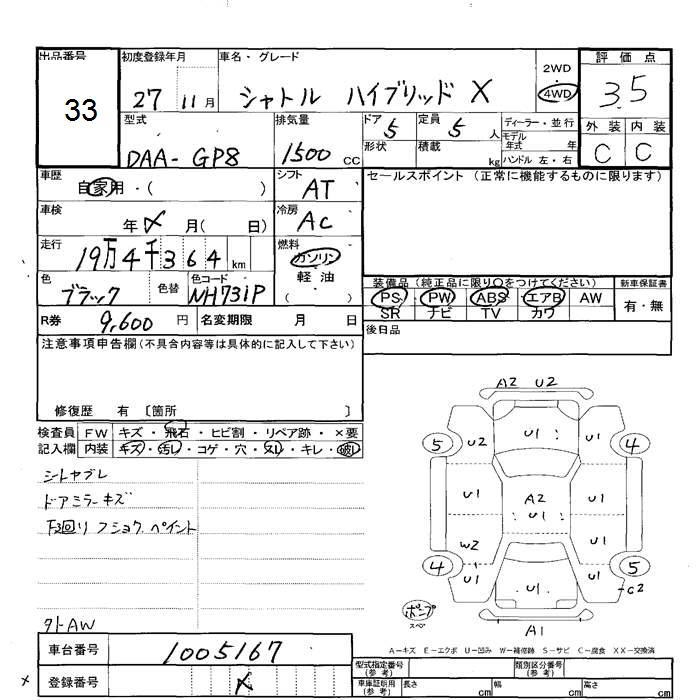 出品番号
33
初度登録年月
27 11月
車名・グレード
シャトル ハイブリッド X
2WD
4WD
評価点
3.5
外装 内装
C C
型式
DAA-GP8
排気量
1500 CC
ドア
5
形状
定員
5 人
積載 kg
ディーラー・並行
モデル年式 年
ハンドル 左・右
車歴
自家用・( )
シフト
AT
セールスポイント (正常に機能するものに限ります)
車検
年 X 月( 日)
冷房
AC
走行
19万4千364 km
燃料
ガソリン
軽油
( )
色
ブラック
色替
色コード
NH731P
装備品(純正品に限り○をつけてください)
PS PW ABS エアB AW
SR ナビ TV カワ
新車保証書
有・無
R券
9,600 円
名変期限 月 日
後日品
注意事項申告欄(不具合内容等は具体的に記入して下さい)
修復歴 有 〔箇所 〕
検査員記入欄
FW キズ・飛石・ヒビ割・リペア跡・×要
内装 キズ・汚レ・コゲ・穴・スレ・キレ・破レ
シートヤブレ
ドアミラーキズ
下廻り フショク.ペイント
外AW
A2 U2
5 U2 U1 4
U1 A2 U1 U1
W2 U1
4 U1 U1 5
-C2
ポンプ
スペ
A1
A-キズ E-エクボ U-凹み W-補修跡 S-サビ C-腐食 XX-交換済
車台番号
1005167
登録番号
X
x
型式指定番号
(参考)
類別区分番号
(参考)
車庫証明用
(参考)
長さ cm 幅 cm 高さ cm